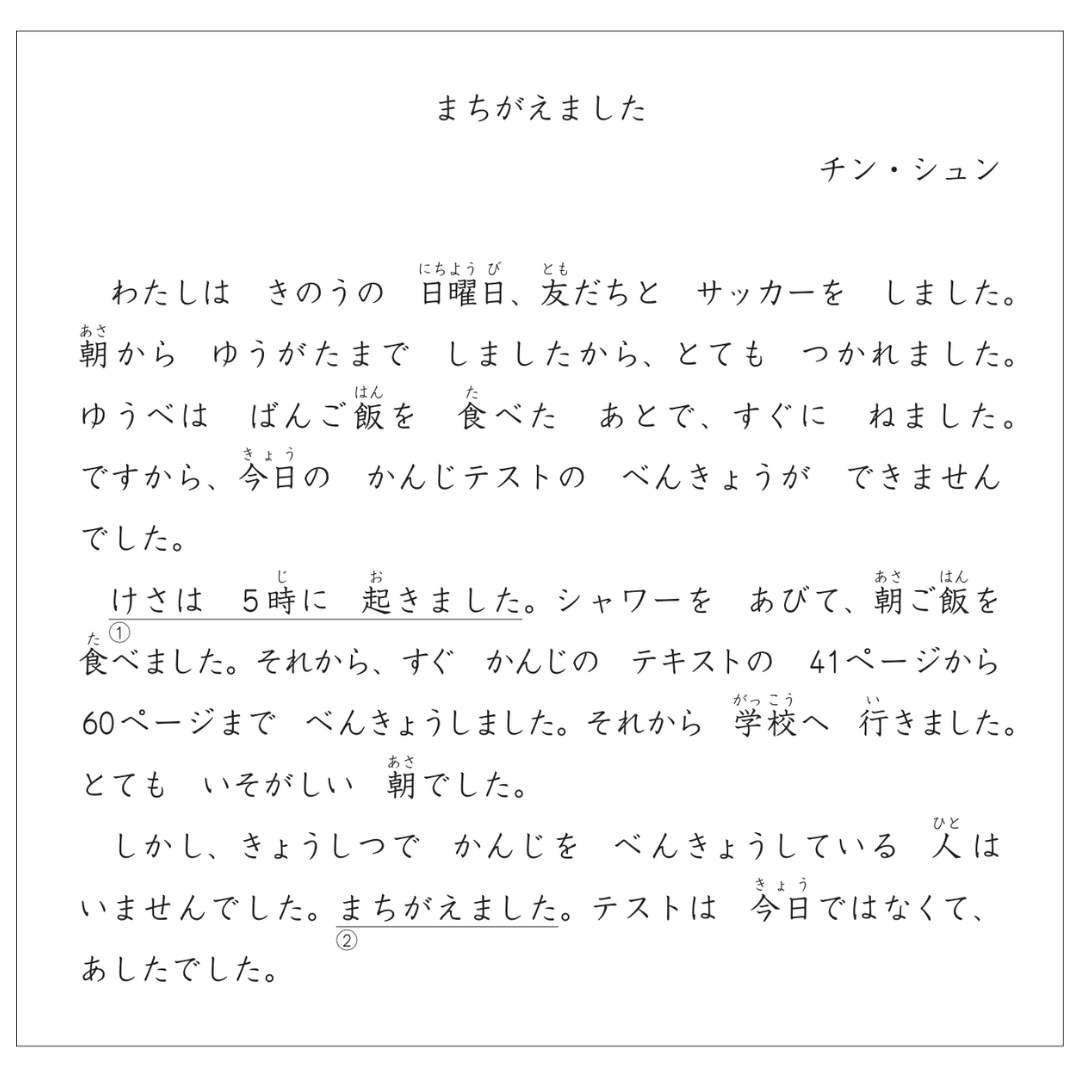 まちがえました
チン・シュン
にちよう び とも
わたしは きのうの 日曜日、友だちと サッカーを しました。
あさ
朝から ゆうがたまで しましたから、とても つかれました。
はん た
ゆうべは ばんご飯を 食べた あとで、すぐに ねました。
きょう
ですから、今日の かんじテストの べんきょうが できません
でした。
じ お あさ はん
けさは 5時に 起きました。シャワーを あびて、朝ご飯を
①
た
食べました。それから、すぐ かんじの テキストの 41ページから
がっこう い
60ページまで べんきょうしました。それから 学校へ 行きました。
あさ
とても いそがしい 朝でした。
ひと
しかし、きょうしつで かんじを べんきょうしている 人は
きょう
いませんでした。まちがえました。テストは 今日ではなくて、
②
あしたでした。